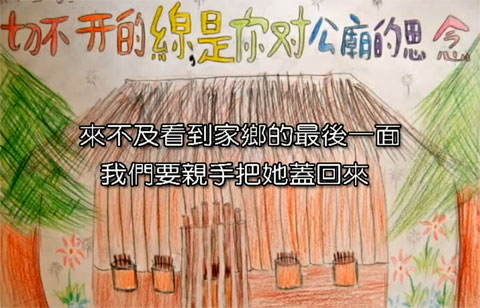 切不开的線,是你对公廟的思念
來不及看到家鄉的最後一面
我們要親手把她蓋回來